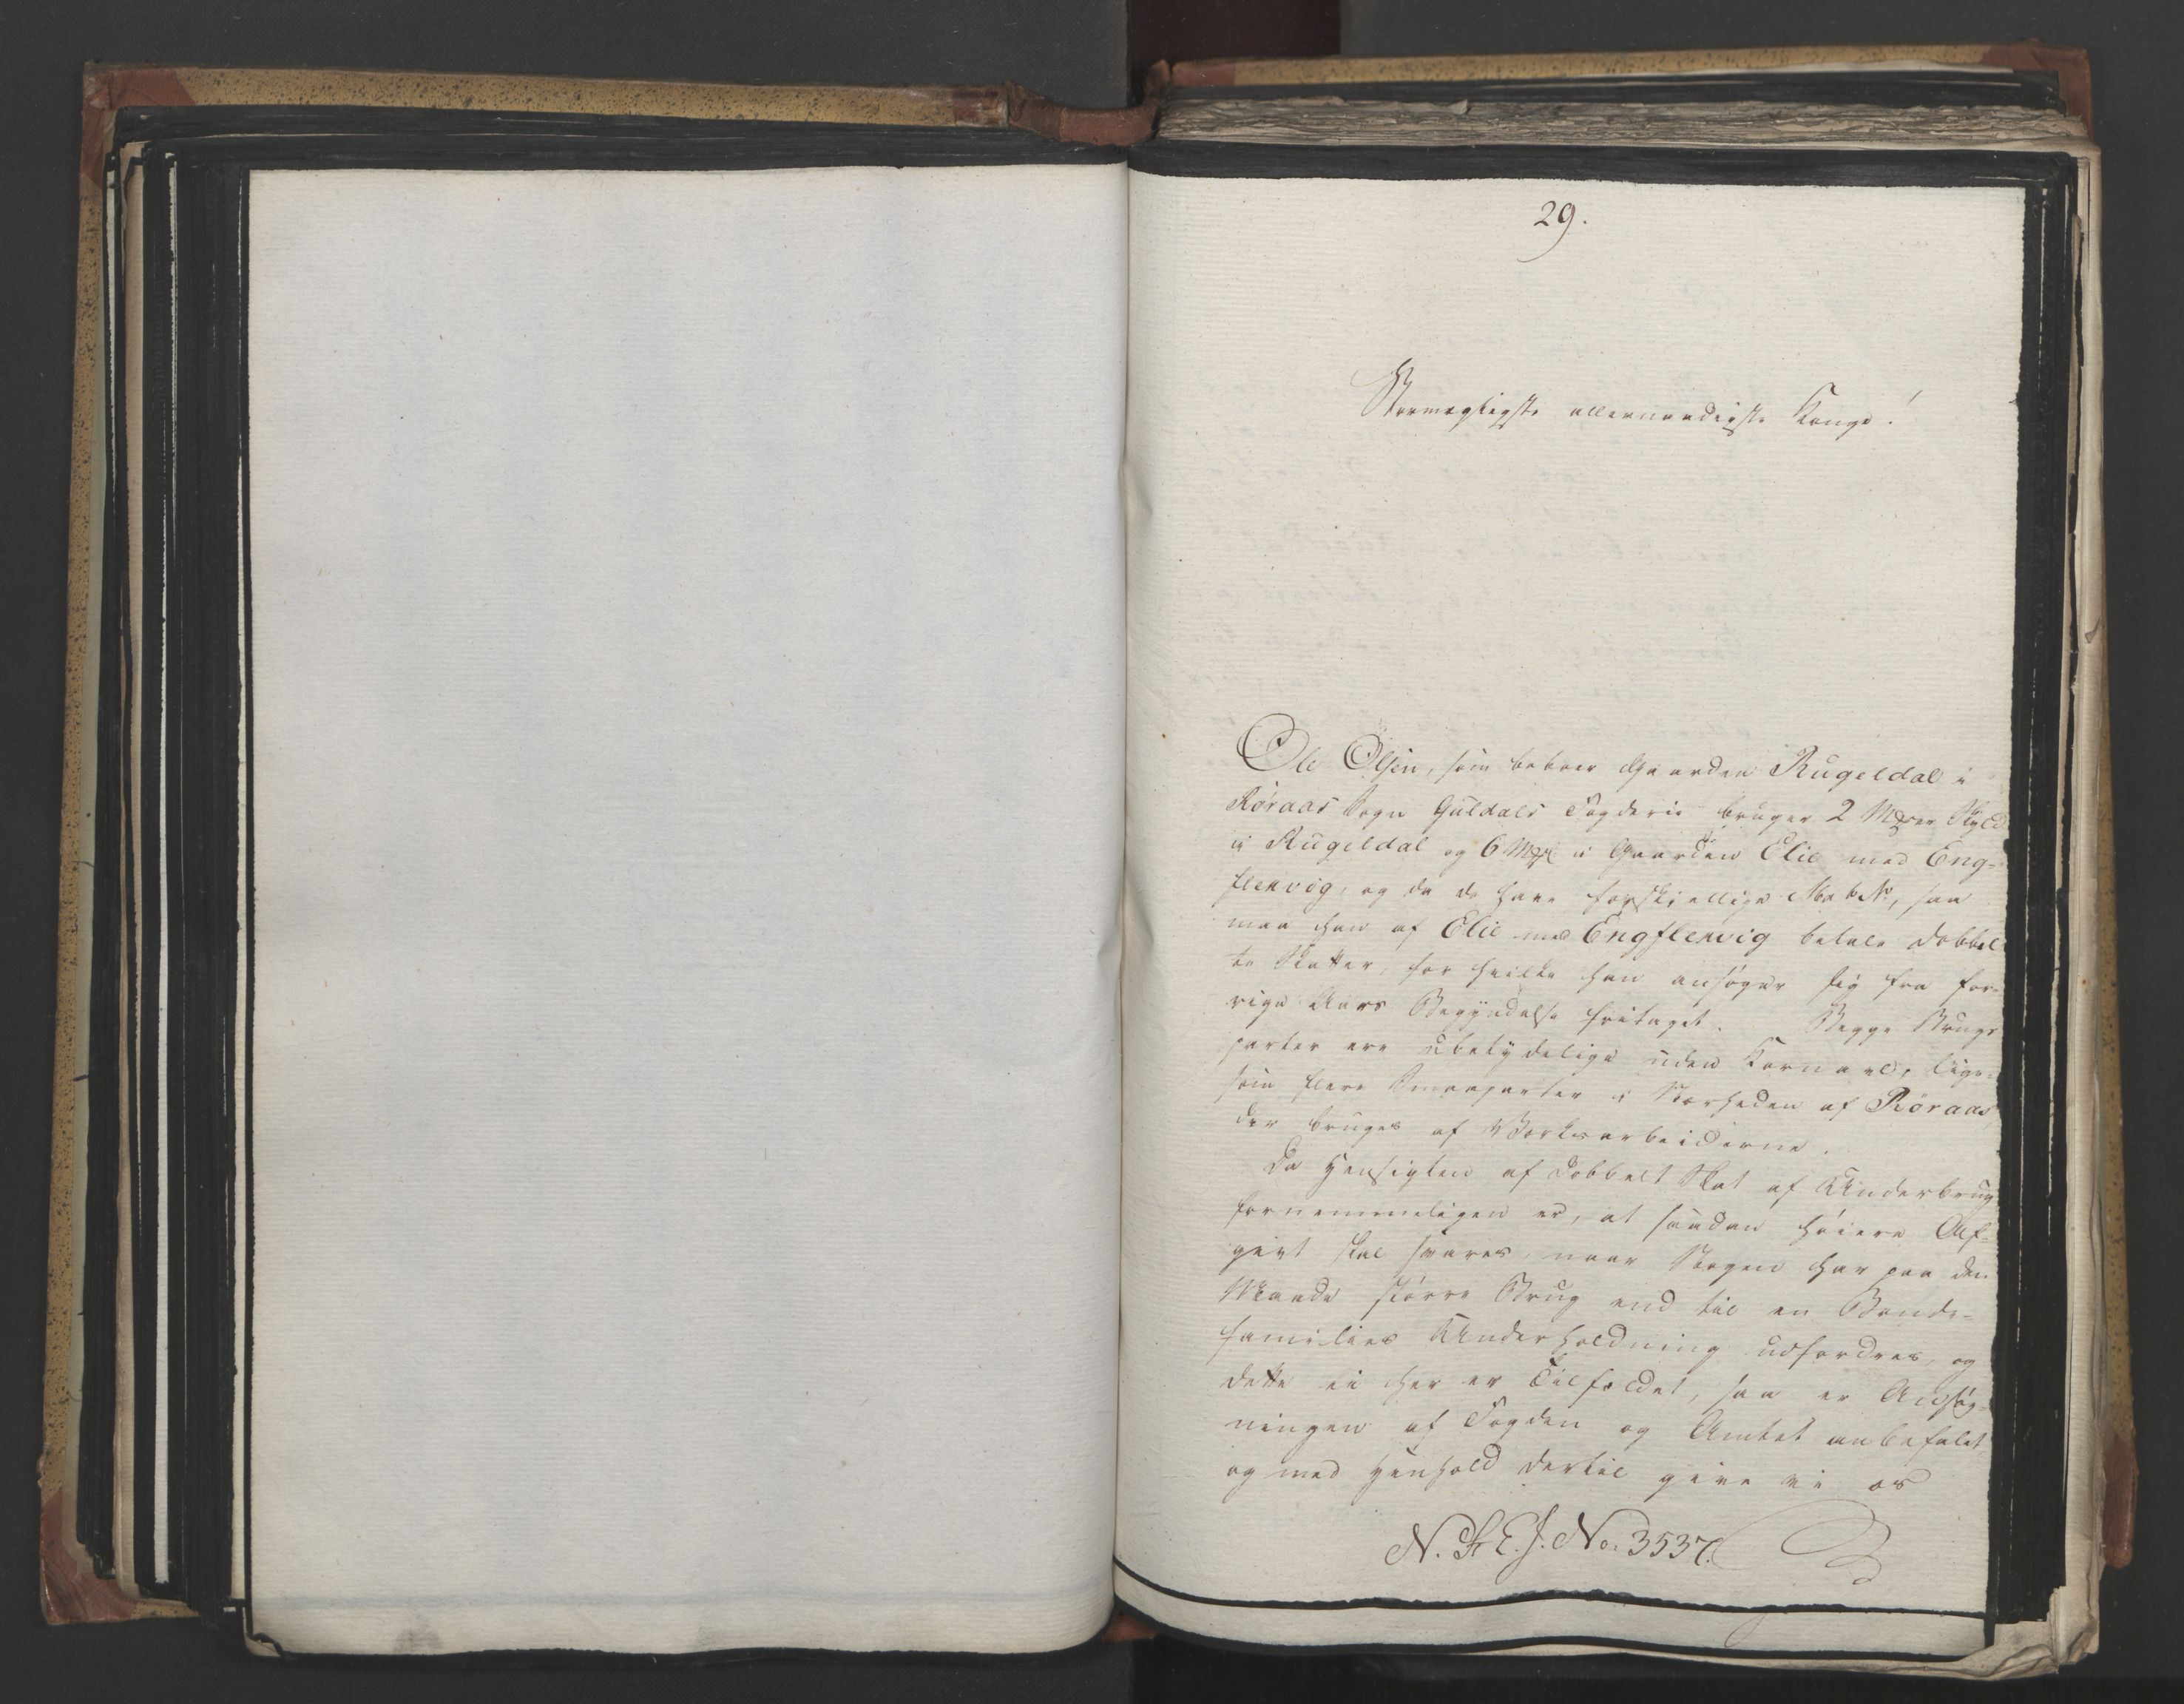 29.
Stormægtigste allernaadigste Konge!
Ole Olsen, som beboer Gaarden Rugeldal i
Røraas Sogn Guldals Fogderie bruger 2 Mker Skyld
i Rugeldal og 6 Mkl i Gaarden Elie med Eng-
flenvig, og da de have forskiellige No, saa
maa han af Elie med Engflenvig betale dobbel
te Skatter, for hvilke han ansøger sig fra for-
rige Aars Begyndelse fritaget. Begge Brugs
parter ere ubetydelige uden Kornavl, lige-
som flere Smaaparter i Nærheden af Røraas,
der bruges af Værksarbeiderne.
Da Hensigten af dobbelt Skat af Underbrug
fornemmeligen er, at saadan høiere Af-
givt skal svares, naar Nogen har paa den
Maade større Brug end til en Bonde-
families Underholdning udfordres, og
dette ei her er Tilfældet, saa er Ansøg-
ningen af Fogden og Amtet anbefalet
og med Henhold dertil give vi os
N. K. E. J. No. 3537.